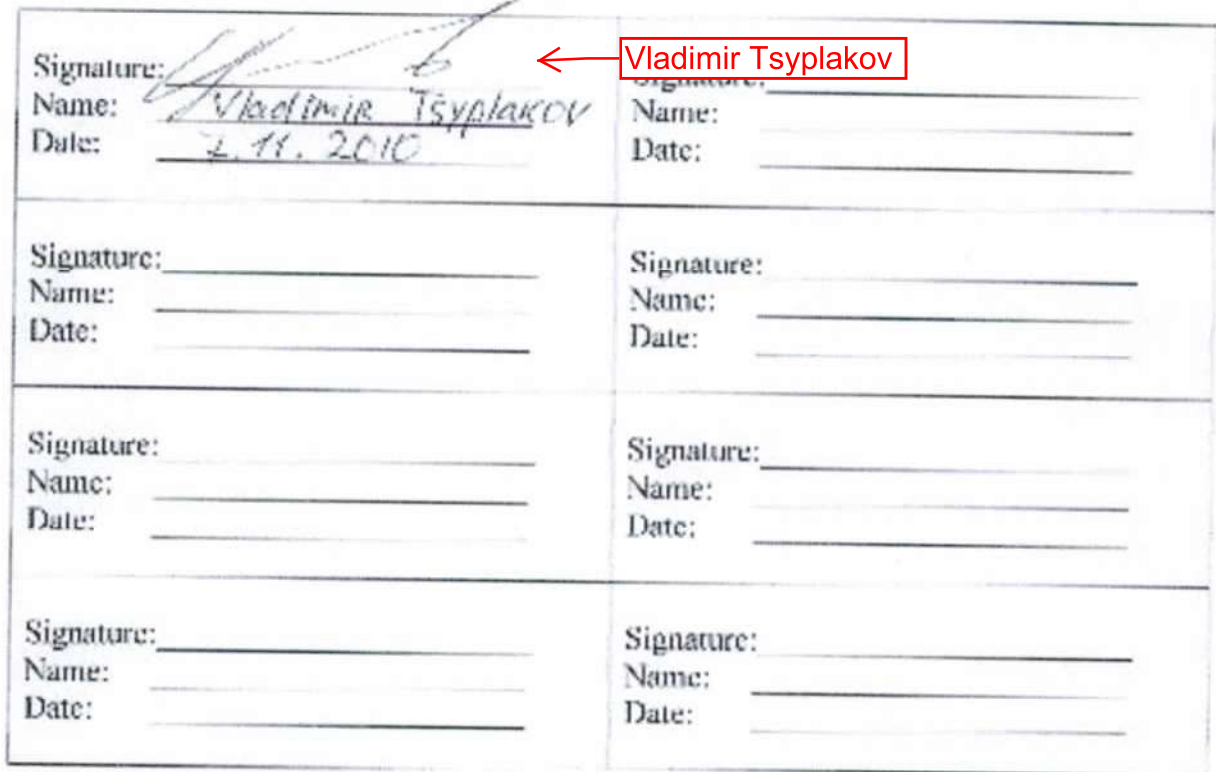 Signature:
Vladimir Tsyplakov
Name: Vladimir Tsyplakov
Date: 7.11.2010
Signature:
Name:
Date:
Signature:
Name:
Date:
Signature:
Name:
Date:
Signature:
Name:
Date:
Signature:
Name:
Date:
Signature:
Name:
Date:
Signature:
Name:
Date: